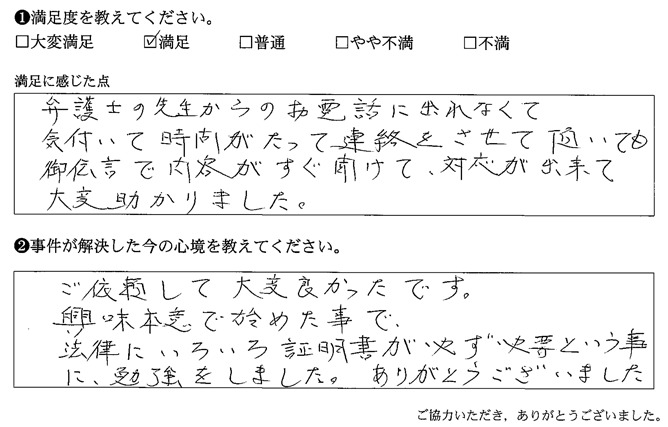 ❶満足度を教えてください。
□大変満足 ☑満足 □普通 □やや不満 □不満
満足に感じた点
弁護士の先生からのお電話に出れなくて
気付いて時間がたって連絡をさせて頂いても
御伝言で内容がすぐ聞けて、対応が出来て
大変助かりました。
❷事件が解決した今の心境を教えてください。
ご依頼して大変良かったです。
興味本意で始めた事で、
法律にいろいろ証明書が必ず必要という事
に、勉強をしました。ありがとうございました
ご協力いただき、ありがとうございました。